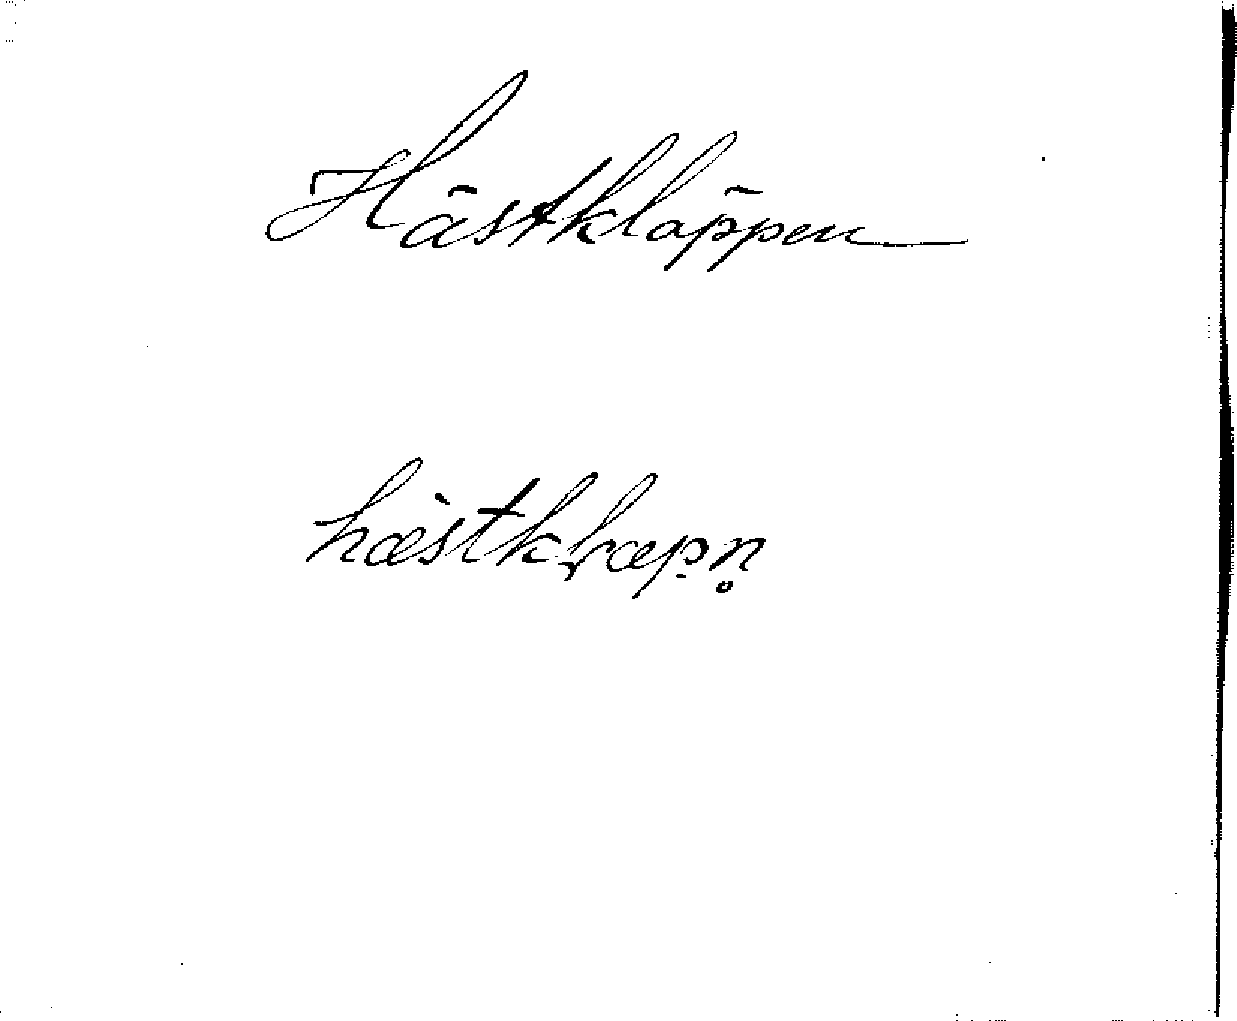 Hästkläppen
hæ̀stkḷæp̣n̥